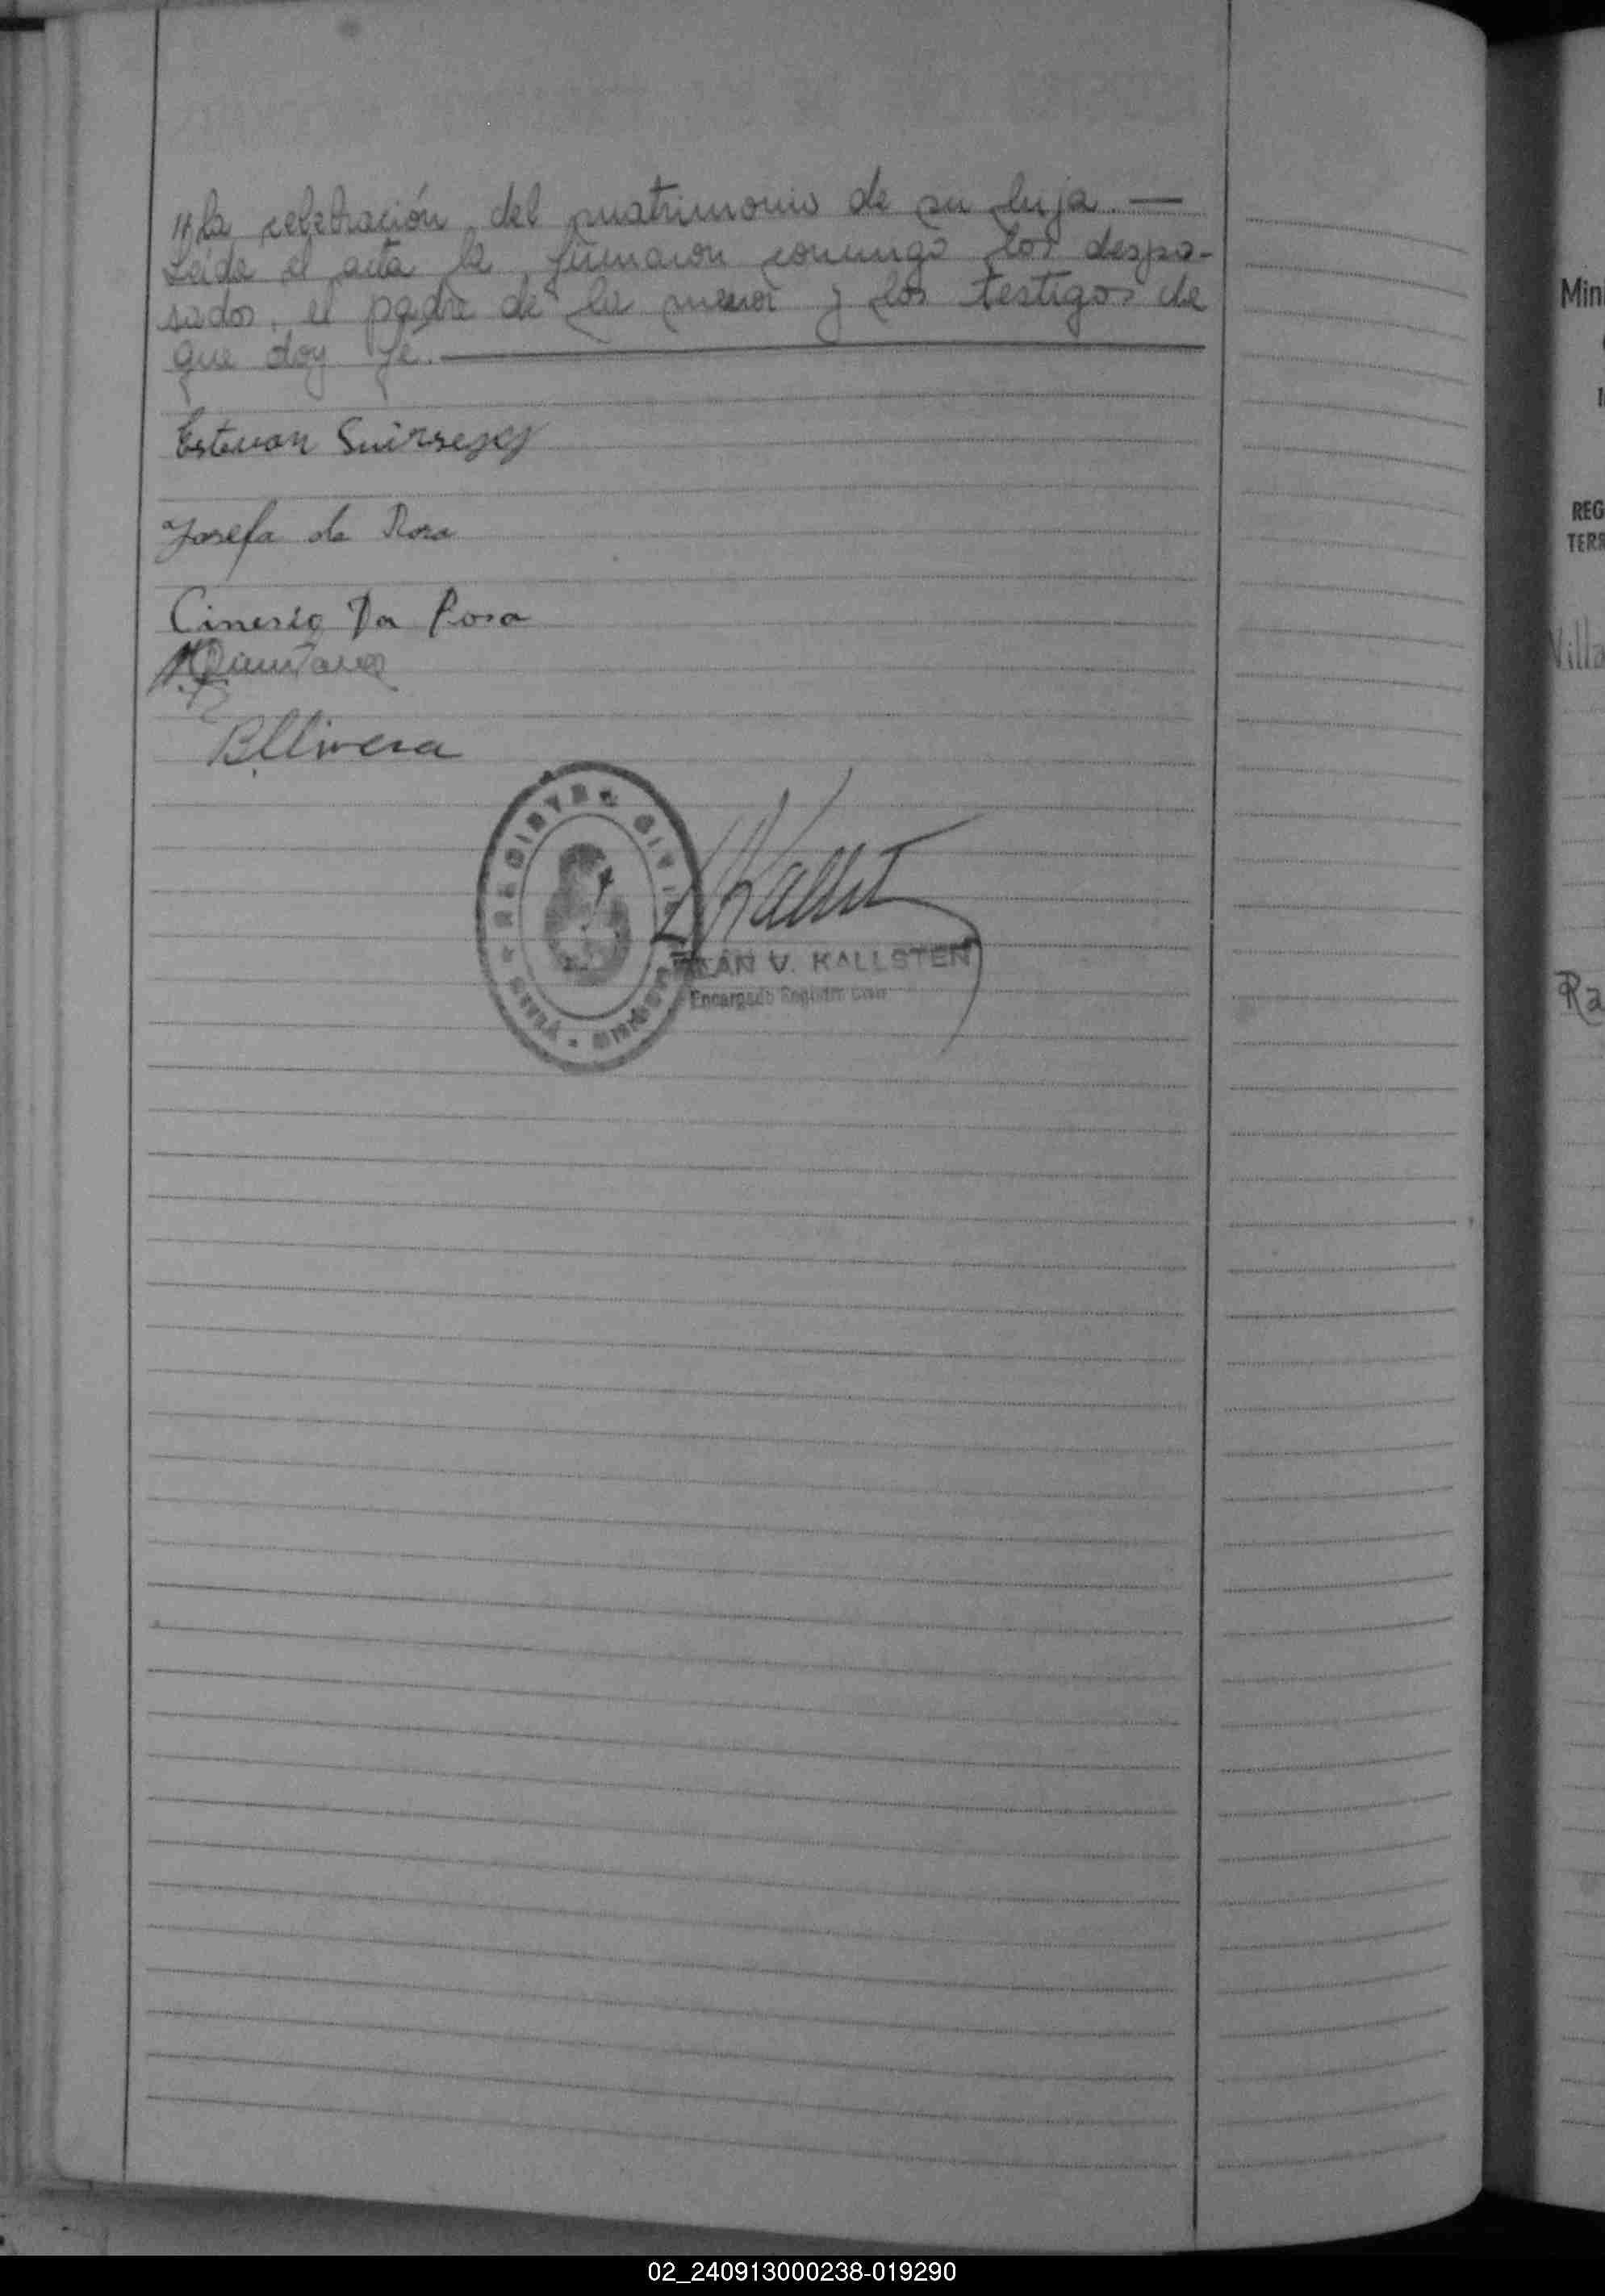 "la celebración del matrimonio de su hija. —
Leída el acta la firmaron conmigo los despo-
sados, el padre de la menor y los testigos de
que doy fe.
Estevan
Josefa da Rosa
Cinesio Da Rosa
REGISTRO CIVIL
V. KALLSTEN
Encargado Registro Civil
Min
REG
TERR
Villa
Ra
02_240913000238-019290